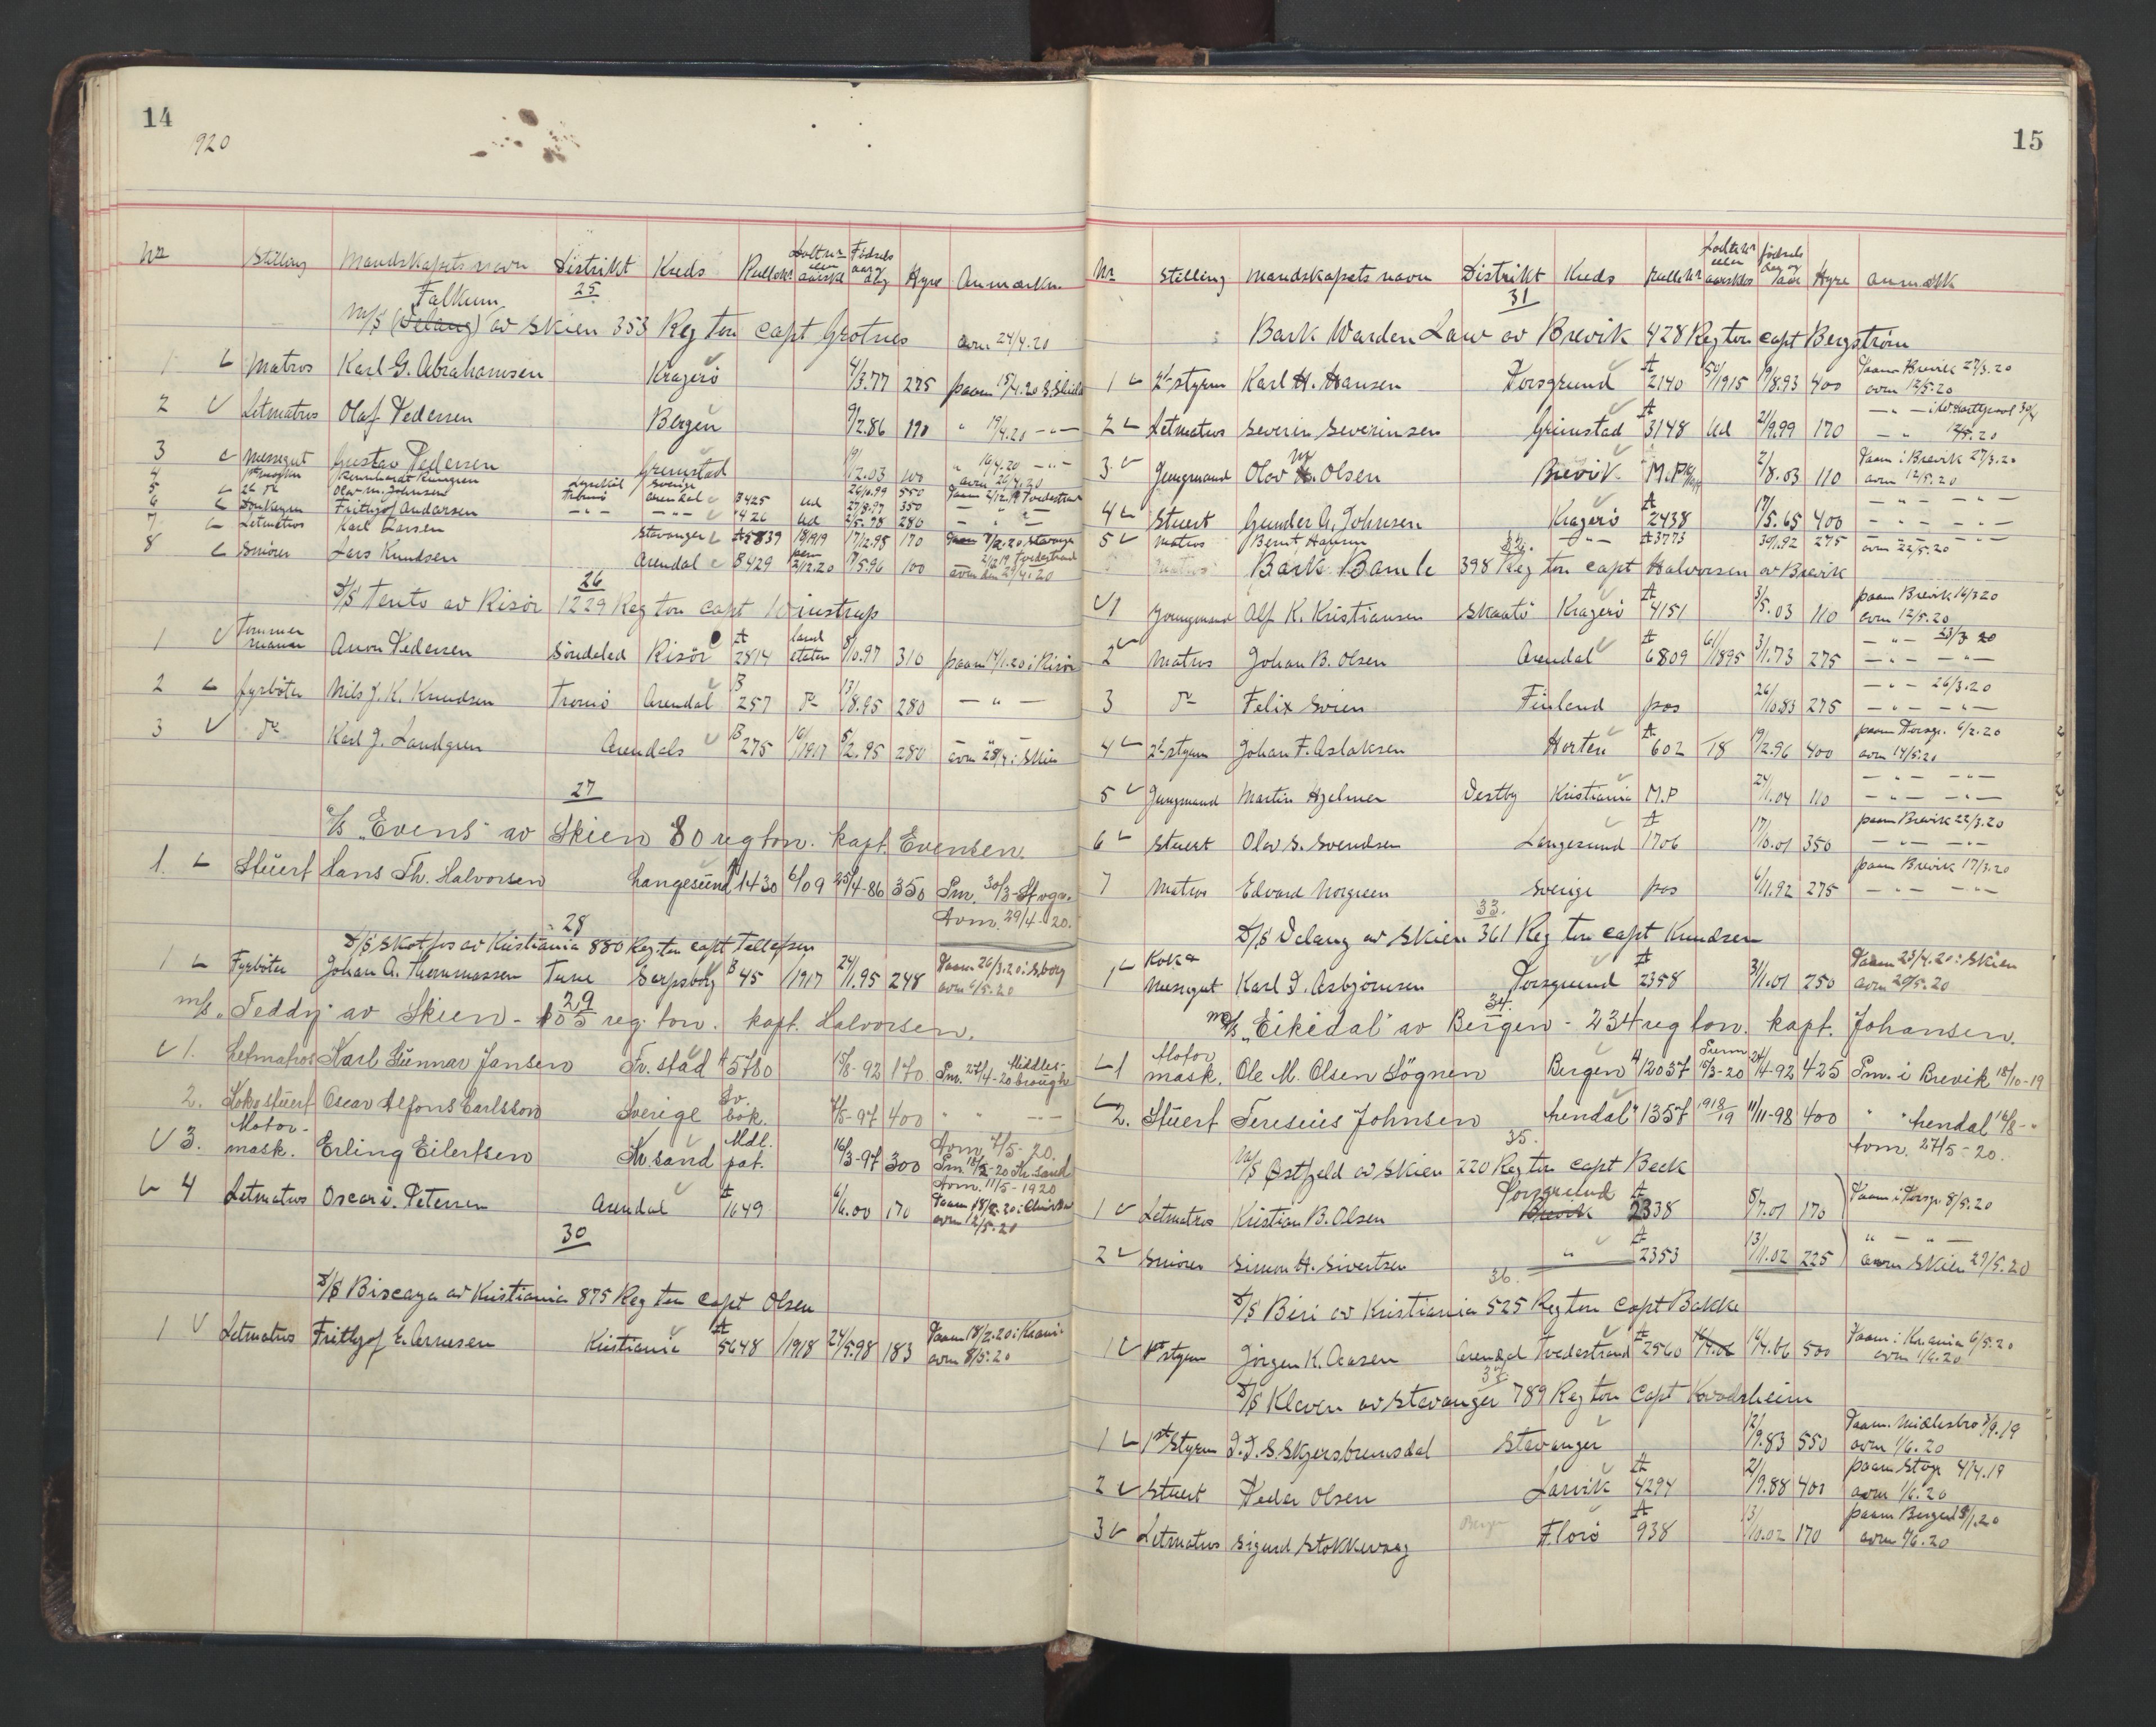 14
920
Nr Stilling Mandskapets navn Distrikt Kreds Rullenr. Lodtnr. eller aarskl. Fødsels aar og dag Hyre Anmærkn.
25
Falkum
M/S (Delang) av Skien 353 Reg ton capt Grotnes avm 24/4.20
1 Matros Karl G. Abrahamsen Kragerö 4/3.77 275 paam 15/4.20 S.Skield
2 Letmatros Olaf Pedersen Bergen 9/2.86 190 " 19/4.20 — " —
3 Messegut Gustav Pedersen Grimstad 19/12.03 100 " 16/4.20 — " —
4 Bernhardt Lysekil Sverige 26/10.99 550 avm 26/4.20
5 2de do Olav M. Johnsen Tromö Arendal B 425 Ud 27/8.97 350 Paam 2/12.19 Tvedestrand
6 Frithjof Andersen — " — — " — " 426 Ud 2/5.78 280 — " —
7 Letmatros Karl Larsen Stavanger A 5839 1919 17/12.98 170 Paam 7/2.20 Stavanger
8 Smörer Lars Knudsen Arendal B 429 2/12.20 17/5.96 100 2/12.19 Tvedestrand avm den 24/4.20
26
D/S Tento av Risör 1229 Reg ton capt Winstrup
1 Tømmermann Anon Pedersen Söndeled Risör A 2814 land etaten 8/10.97 310 paam 14/1.20 i Risör
2 fyrböter Nils J. K. Knudsen Tromö Arendal B 257 do 13/8.95 280 — " —
3 do Karl J. Landgren Arendals B 275 16/1917 5/2.95 280 avm 28/4 i Skien
27
S/S "Evens" av Skien 80 reg ton. kapt. Evensen.
1. Stuert Hans Th. Halvorsen Langesund A 1430 6/09 25/4-86 350 Pm. 30/3-Stvgr.
Avm. 29/4-20.
28
D/S Skotfos av Kristiania 880 Reg ton capt Tellefsen
1 Fyrböter Johan A. Thommassen Tune Sarpsborg B 45 /1917 24/1.95 248 Paam 26/3.20 i Sborg avm 6/5.20
29
M/S "Teddy" av Skien - 105 reg. ton. kapt. Halvorsen.
1. Letmatros Karl Gunnar Jansen Fr.stad A 5780 15/8-92 170 Pm. 27/4-20 Middlesbrough
2. Kok&stuert Oscar Alfons Carlsson Sverige Sv. bok. 4/8-97 400 " " — —
Avm. 7/5-20.
3. Motormask. Erling Eilertsen Kr.sand Mdl. pat. 16/3-97 300 Pm. 18/2-20 Kr.sand
Avm. 11/5-1920
4 Letmatros Oscar i. Petersen Arendal A 1649 6/6.00 170 Paam 18/2.20 avm 12/5.20
30
D/S Biscaya av Kristiania 875 Reg ton capt Olsen
1 Letmatros Frithjof E. Arnesen Kristiania A 5648 /1918 24/5.98 183 Paam 18/2.20 i Krania avm 8/5.20
15
Nr Stilling Mandskapets navn Distrikt Kreds Rullenr Lodtnr eller aarsklas Fødsels dag og aar Hyre Anmærk
31
Bark Warden Law av Brevik 428 Reg ton capt Bergström
1 2d styrm Karl H. Hansen Porsgrund A 2140 50/1915 19/8.93 400 Paam Brevik 27/3.20 avm 12/5.20
2 Letmatros Severin Severinsen Grimstad A 3148 Ud 21/9.99 170 — " — 12/5.20
3 Jungmand Olav M. Olsen Brevik M.P 2/8.03 110 Paam i Brevik 27/3.20 avm 12/5.20
4 Stuert Gunder A. Johnsen Kragerö A 2438 17/5.65 400 — " — — " —
5 Matros Bernt Hansen — " — A 3773 30/1.92 275 avm 22/5.20
32.
Bark Bamle 398 Reg ton capt Halvorsen av Brevik
1 Jungmand Alf K. Kristiansen Skaatö Kragerö A 4151 3/5.03 110 paam Brevik 16/3 20 avm 12/5.20
2 Matros Johan B. Olsen Arendal A 6809 61/1895 3/1.73 275 — " — 23/3 20
3 do Felix Svien Finland pas 26/10.83 275 — " — 26/3.20
4 2d styrm Johan F. Aslaksen Horten A 602 18 19/2.96 400 paam Porsgr. 6/2.20 avm 14/5.20
5 Jungmand Martin Hjelmer Vestby Kristiania M.P 24/1.04 110 — " — — " —
6 Stuert Olav S. Svendsen Langesund A 1706 17/10.01 350 paam Brevik 22/3.20
7 Matros Edvard Norgreen Sverige pas 6/11.92 275 paam Brevik 17/3.20
33.
D/S Delang av Skien 361 Reg ton capt Knudsen
1 Kok & Messegut Karl I. Asbjörnsen Porsgrund A 2358 31/1.01 250 Paam 23/4.20 i Skien avm 20/5.20
34.
M/S "Eikedal" av Bergen - 234 reg ton. kapt. Johansen.
1 Motormask. Ole M. Olsen Sögnen Bergen A 12057 Perm 15/3-20 24/4-92 425 Pm. i Brevik 18/10-19
2. Stuert Tereseus Johnsen Arendal A 1357 1918/19 11/11-98 400 " " Arendal 16/8-"
Avm. 27/5-20.
35.
M/S Østfjeld av Skien 220 Reg ton capt Beck
1 Letmatros Kristian B. Olsen Porsgrund Brevik A 2338 8/7.01 170 Paam i Porsgr. 8/5.20
2 Smörer Simon H. Sivertsen " A 2353 13/11.02 225 avm Skien 29/5.20
36.
D/S Biri av Kristiania 525 Reg ton capt Bakke
1 1st styrm Jörgen K. Aasen Arendal Tvedestrand A 2560 16/4.66 500 Paam i Krania 6/5.20 avm 1/6.20
37.
D/S Kleven av Stavanger 789 Reg ton capt Kvadsheim
1 1st Styrm I.I.S. Skjersbrunsdal Stavanger 12/9.83 550 Paam. Midlesbro 3/9.19 avm 1/6.20
2 Stuert Peder Olsen Larvik A 4294 21/9.88 400 paam Stvgr 4/4.19 avm 1/6.20
3 Letmatros Sigurd Stokkevaag Bergen Florö A 938 13/10.02 170 paam Bergen 8/1.20 avm 1/6.20